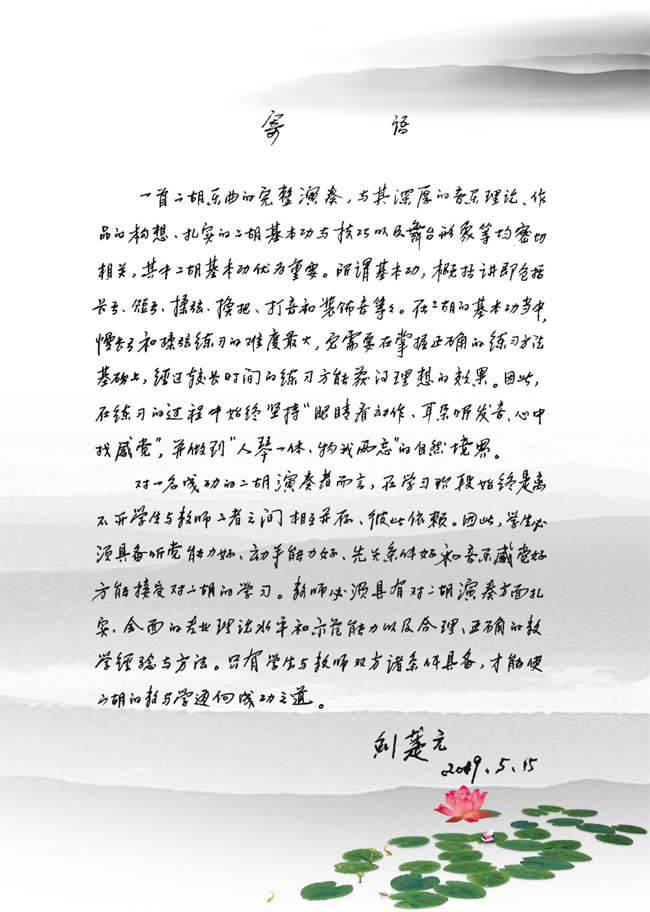 寄 语
一首二胡乐曲的完整演奏，与其深厚的音乐理论、作
品的构想、扎实的二胡基本功与技巧以及舞台形象等均密切
相关，其中二胡基本功尤为重要。所谓基本功，概括讲即包括
长弓、短弓、揉弦、换把、打音和装饰音等等。在二胡的基本功当中，
慢长弓和揉弦练习的难度最大，它需要在掌握正确的练习方法
基础上，经过较长时间的练习方能获得理想的效果。因此，
在练习的过程中始终坚持“眼睛看动作、耳朵听发音、心中
找感觉”，并做到“人琴一体、物我两忘”的自然境界。
对一名成功的二胡演奏者而言，在学习阶段始终是离
不开学生与教师二者之间相互并存、彼此依赖。因此，学生必
须具备听觉能力好、动手能力好、先天条件好和音乐感觉好
方能接受对二胡的学习。教师必须具有对二胡演奏方面扎
实、全面的专业理论水平和示范能力以及合理、正确的教
学经验与方法。只有学生与教师双方诸条件具备，才能使
二胡的教与学通向成功之道。
刘 元
2019.5.15